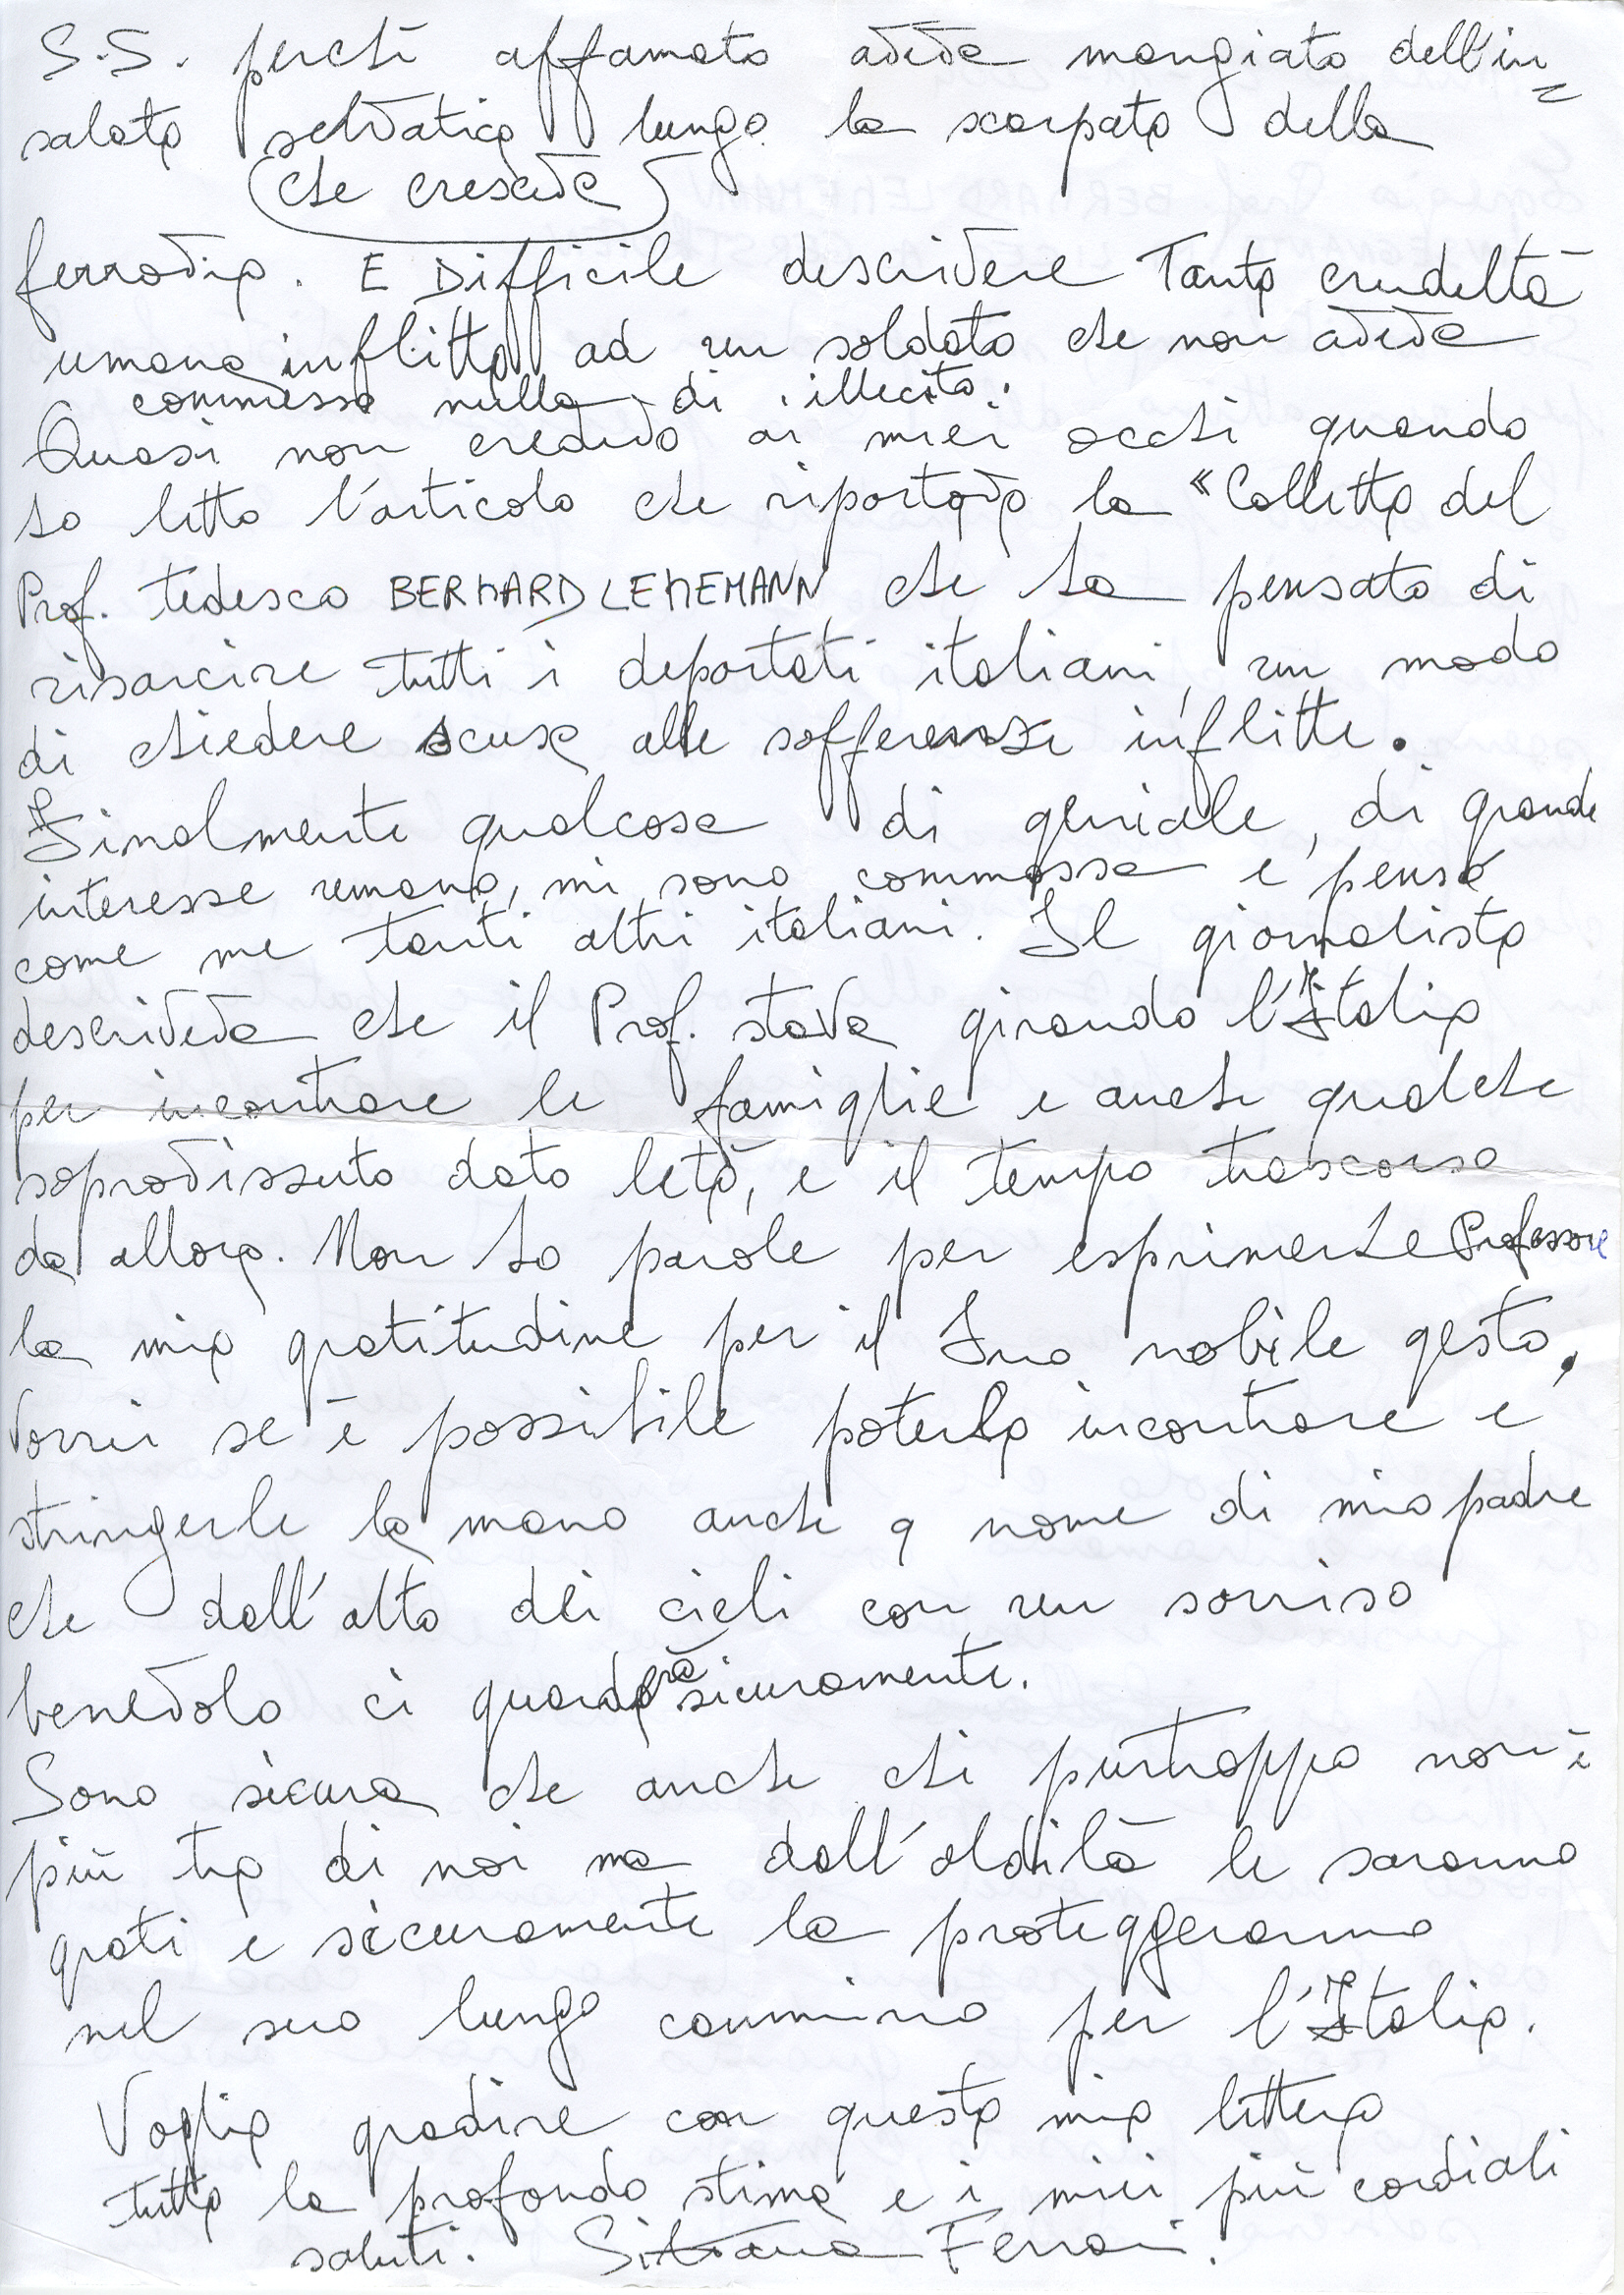 S.S. perché affamato aveva mangiato dell'in=
salata selvatica lungo la scarpata della
(che cresceva)
ferrovia. E Difficile descrivere Tanta crudeltà
umana inflitta ad un soldato che non aveva
commesso nulla di illecito.
Quasi non credevo ai miei occhi quando
ho letto l'articolo che riportava la "Colletta del
Prof. tedesco BERHARD LEHEMANN che ha pensato di
risarcire tutti i deportati italiani, un modo
di chiedere scusa alle sofferenze inflitte.
Finalmente qualcosa di geniale, di grande
interesse umano, mi sono commossa e penso
come me tanti altri italiani. Il giornalista
descriveva che il Prof. stava girando l'Italia
per incontrare le famiglie e anche qualche
sopravissuto dato letà, e il tempo trascorso
da allora. Non ho parole per esprimerLe Professore
la mia gratitudine per il Suo nobile gesto,
Vorrei se è possibile poterLa incontrare e
stringerle la mano anche a nome di mio padre
che dall'alto dei cieli con un sorriso
benevolo ci guarderà sicuramente.
Sono sicura che anche chi purtroppo non è
più tra di noi ma dall'aldilà le saranno
grati e sicuramente la proteggeranno
nel suo lungo cammino per l'Italia.
Voglia gradire con questa mia lettera
tutta la profonda stima e i miei più cordiali
saluti. Silvana Ferrari.